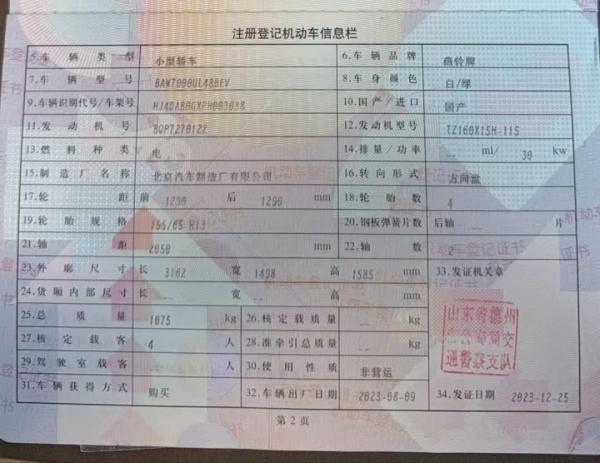 注册登记机动车信息栏
5.车辆类型 小型轿车 6.车辆品牌 燕铃牌
7.车辆型号 BAW7000UL48BEV 8.车身颜色 白/绿
9.车辆识别代号/车架号 10.国产/进口 国产
11.发动机号 BOP7270122 12.发动机型号 TZ160X15H-115
13.燃料种类 电 14.排量/功率 -- ml/ 30 kw
15.制造厂名称 北京汽车制造厂有限公司 16.转向形式 方向盘
17.轮距 前 1290 后 1290 mm 18.轮胎数 4
19.轮胎规格 155/65 R13 20.钢板弹簧片数 后轴 -- 片
21.轴距 2050 mm 22.轴数 2
23.外廓尺寸 长 3162 宽 1498 高 1585 mm 33.发证机关章
24.货厢内部尺寸 长 -- 宽 -- 高 -- mm
25.总质量 1075 kg 26.核定载质量 -- kg
27.核定载客 4 人 28.准牵引总质量 -- kg
29.驾驶室载客 -- 人 30.使用性质 非营运
31.车辆获得方式 购买 32.车辆出厂日期 2023-08-09 34.发证日期 2023-12-25
山东省德州
市公安局交
通警察支队
第2页